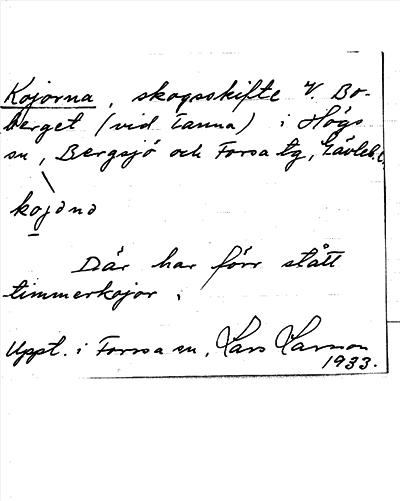 Kojorna, skogsskifte V. Bo-
berget (vid Tanna) i Högs
sn, Bergsjö och Forsa tg, Gävleb. l.
kojənə
Där har förr stått
timmerkojor.
Uppt. i Forssa sn, Lars Larsson
1933.